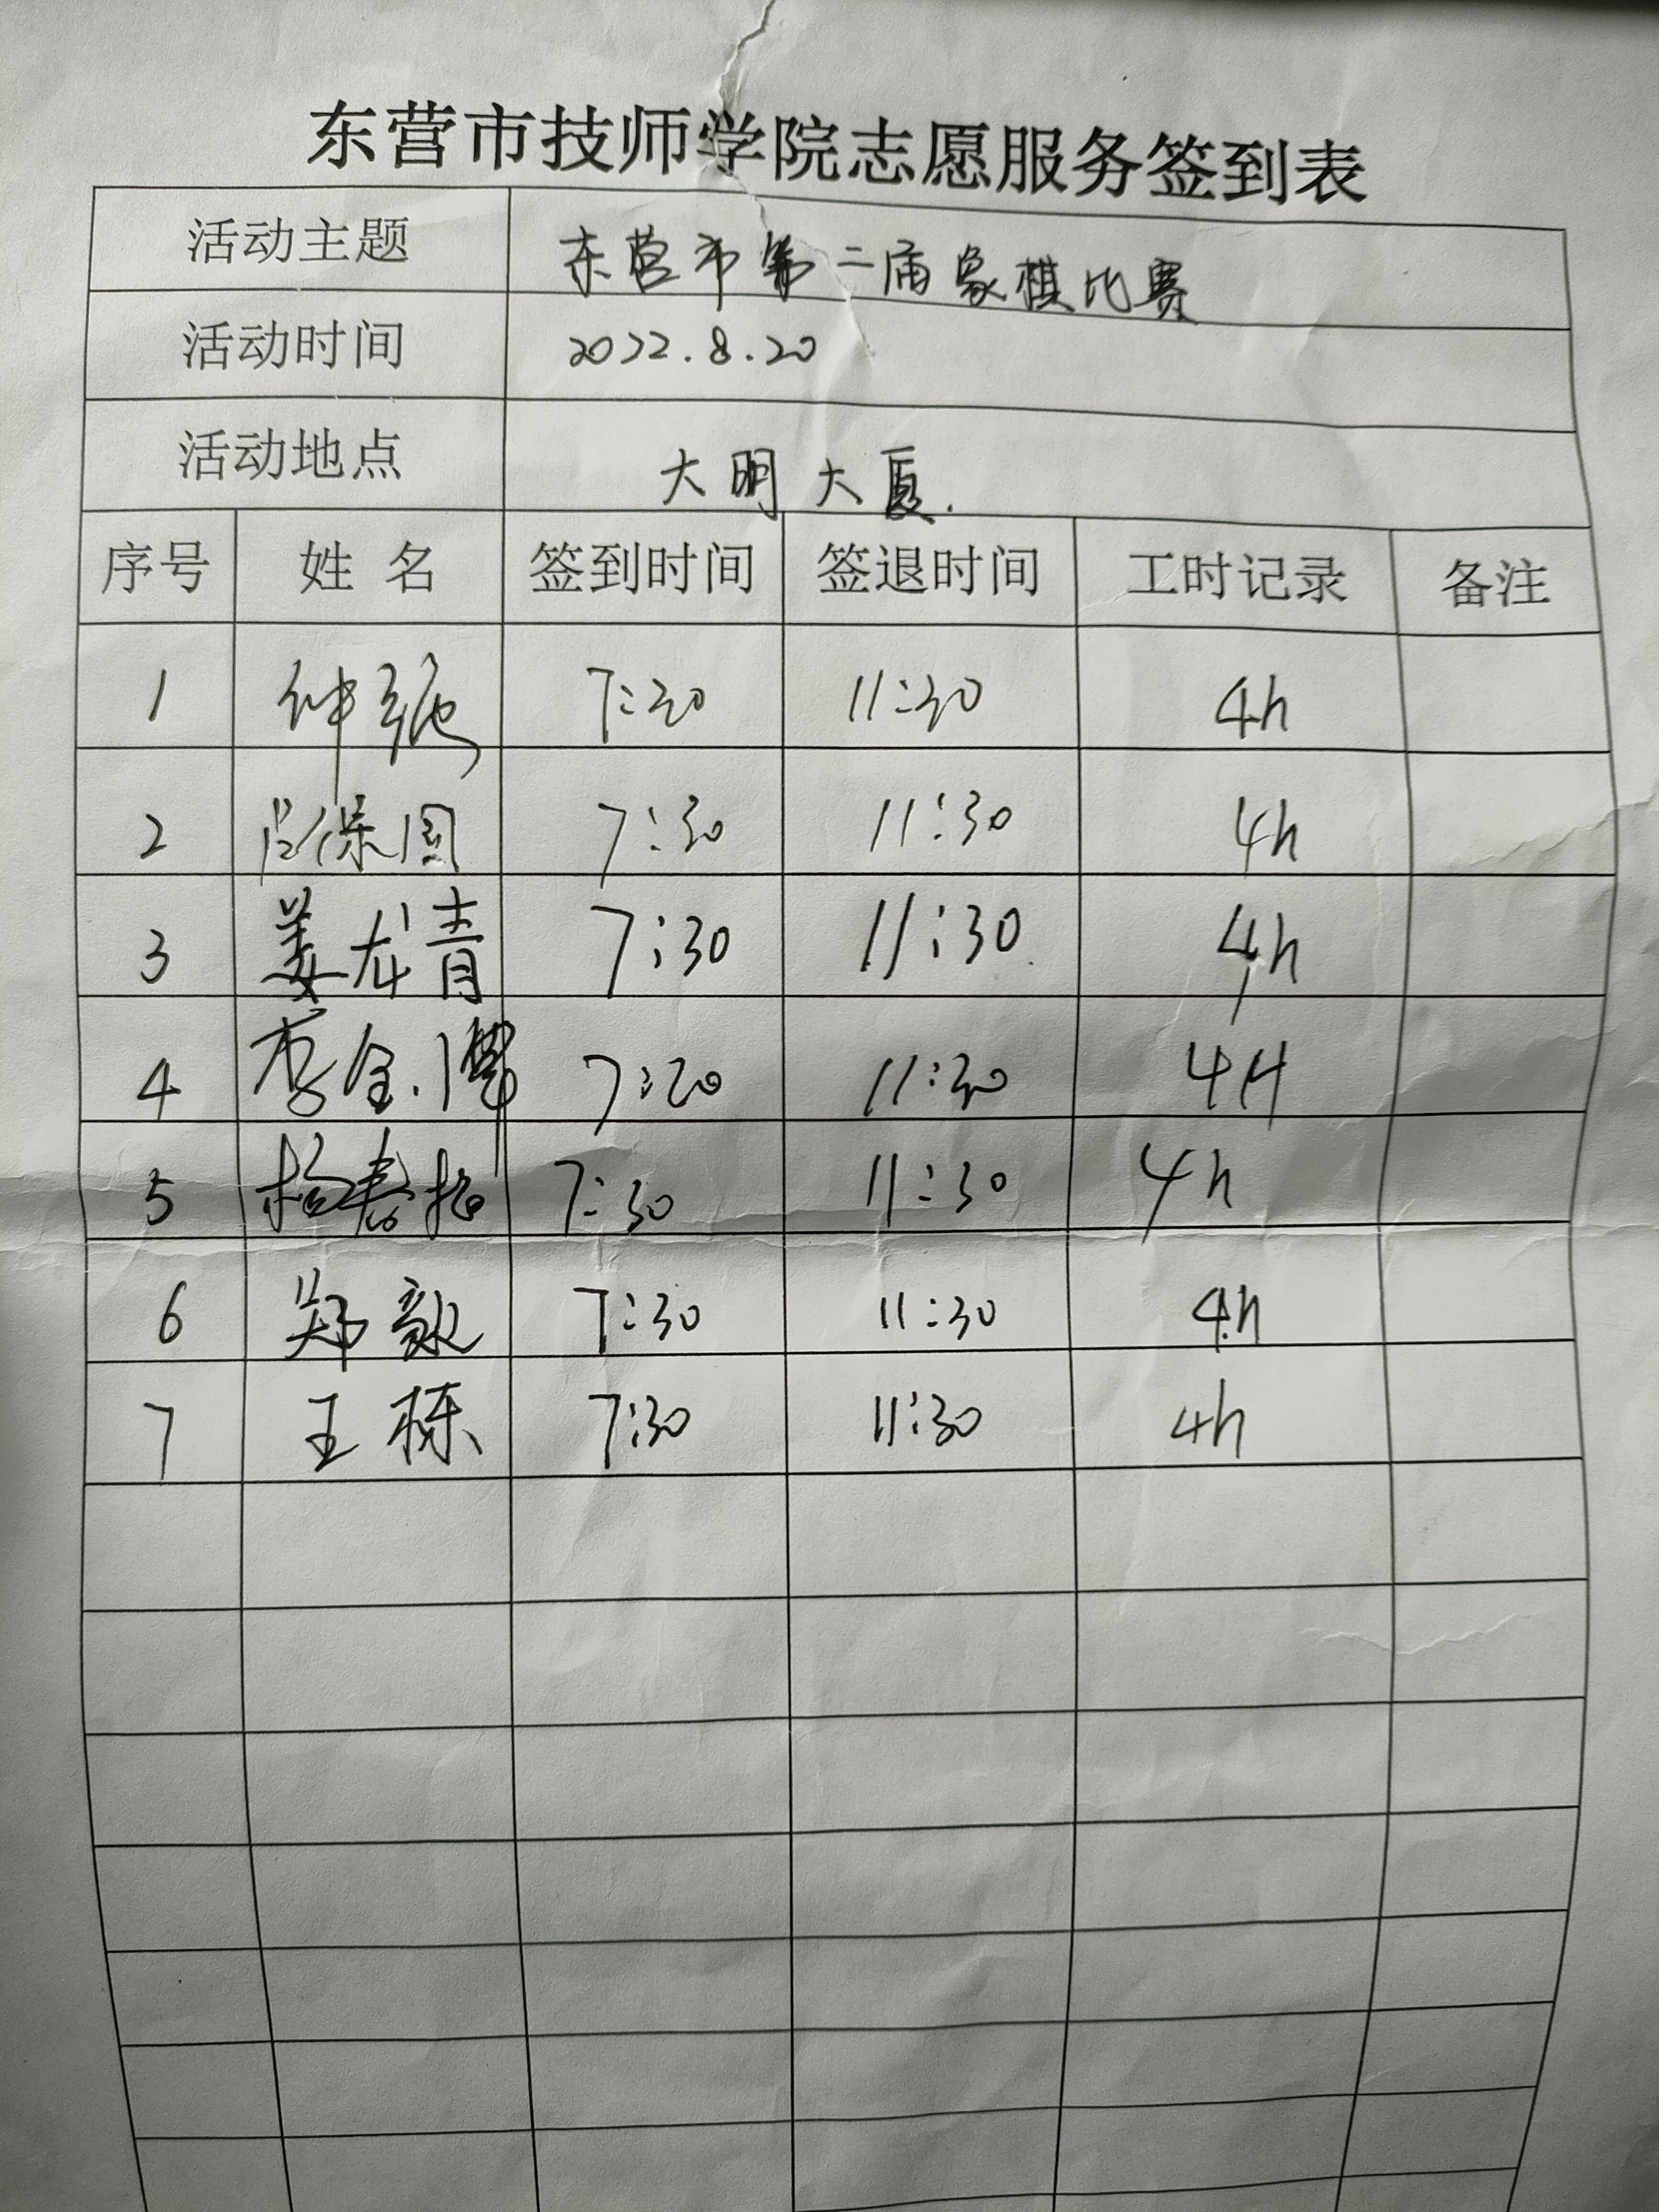 东营市技师学院志愿服务签到表
活动主题 东营市第二届象棋比赛
活动时间 2022.8.20
活动地点 大明大厦.
序号 姓名 签到时间 签退时间 工时记录 备注
1 7:30 11:30 4h
2 吕保国 7:30 11:30 4h
3 姜龙青 7:30 11:30 4h
4 李金博 7:30 11:30 4H
5 7:30 11:30 4h
6 郑毅 7:30 11:30 4h
7 王栋 7:30 11:30 4h